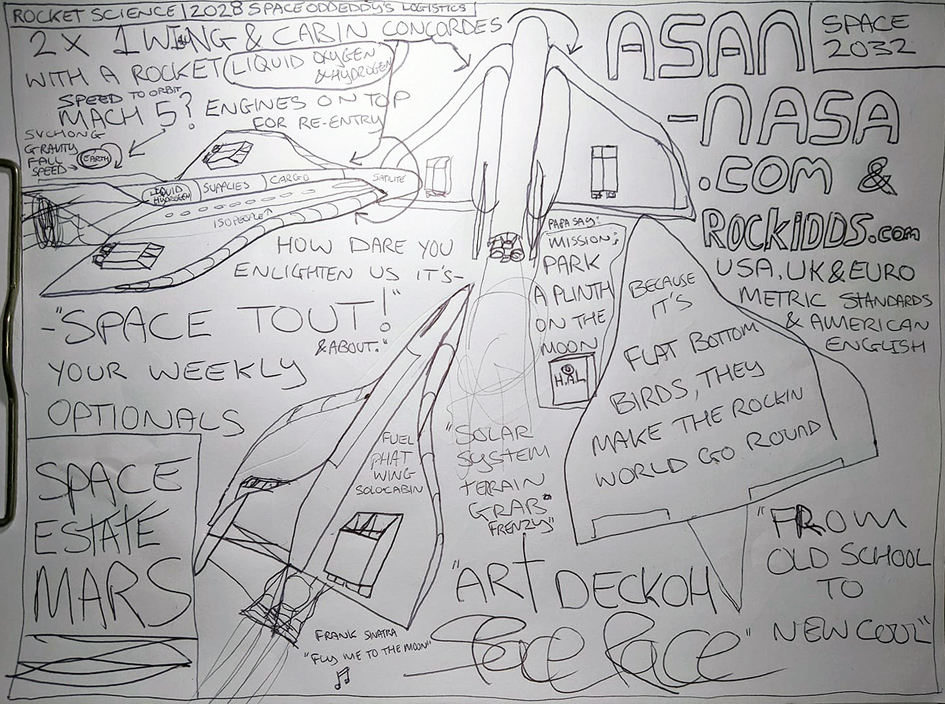 ROCKET SCIENCE | 2028 SPACEODDEDDY'S LOGISTICS |
2X 1 WING & CABIN CONCORDES
WITH A ROCKET (LIQUID OXYGEN
& HYDROGEN
SPEED TO ORBIT
MACH 5? ENGINES ON TOP
FOR RE-ENTRY
GRAVITY
FALL
SPEED
EARTH
LIQUID
HYDROGEN
SUPPLIES
CARGO
150 PEOPLE
ASAN
SPACE
2032
-NASA
.COM &
ROCKIDDS.com
USA, UK & EURO
METRIC STANDARDS
& AMERICAN
ENGLISH
HOW DARE YOU
ENLIGHTEN US IT'S-
-"SPACE TOUT!"
& ABOUT."
YOUR WEEKLY
OPTIONALS
PAPA SAY:
MISSION;
PARK
A PLINTH
ON THE
MOON
H.A.L
BECAUSE
IT'S
FLAT BOTTOM
BIRDS, THEY
MAKE THE ROCKIN
WORLD GO ROUND
SPACE
ESTATE
MARS
FUEL
PHAT
WING
SOLOCABIN
"SOLAR
SYSTEM
TERRAIN
GRAB"
FRENZY"
FRANK SINATRA
"FLY ME TO THE MOON"
"ART DECKOH
Space Race"
"FROM
OLD SCHOOL
TO
NEW COOL"